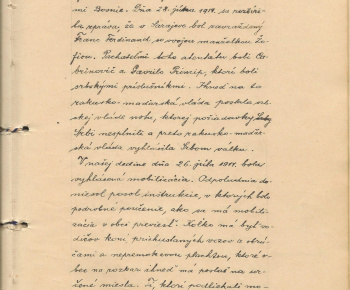 mi Bosnie. Dňa 28. júna 1914. sa rozšíri-
la zpráva, že v Sarajeve bol zavraždený
Franc Ferdinand, so svojou manželkou Žo-
fiou. Páchateľmi toho atentátu boli Ča-
brinovič a Gavrilo Princip, ktorí boli
srbskými príslušníkmi. Ihneď na to
rakusko-maďarská vláda poslala srb-
skej vláde notu, ktorej požiadavky
Srbi nesplnili a preto rakusko-maďar-
ská vláda vyhlásila Srbom válku.
V našej dedine dňa 26. júla 1914. bola
vyhlásená mobilizácia. Odpoludnia do-
niesol posol instrukcie, v ktorých bolo
podrobné poučenie, ako sa má mobili-
zácia v obci previesť. Koľko má byť vo-
dičov koní, prichystaných vozov s obru-
čami a nepremokavou plachtou, ktoré o-
bec na rozkaz ihneď má poslať na ur-
čené miesta. Tí, ktorí podliehali mo-